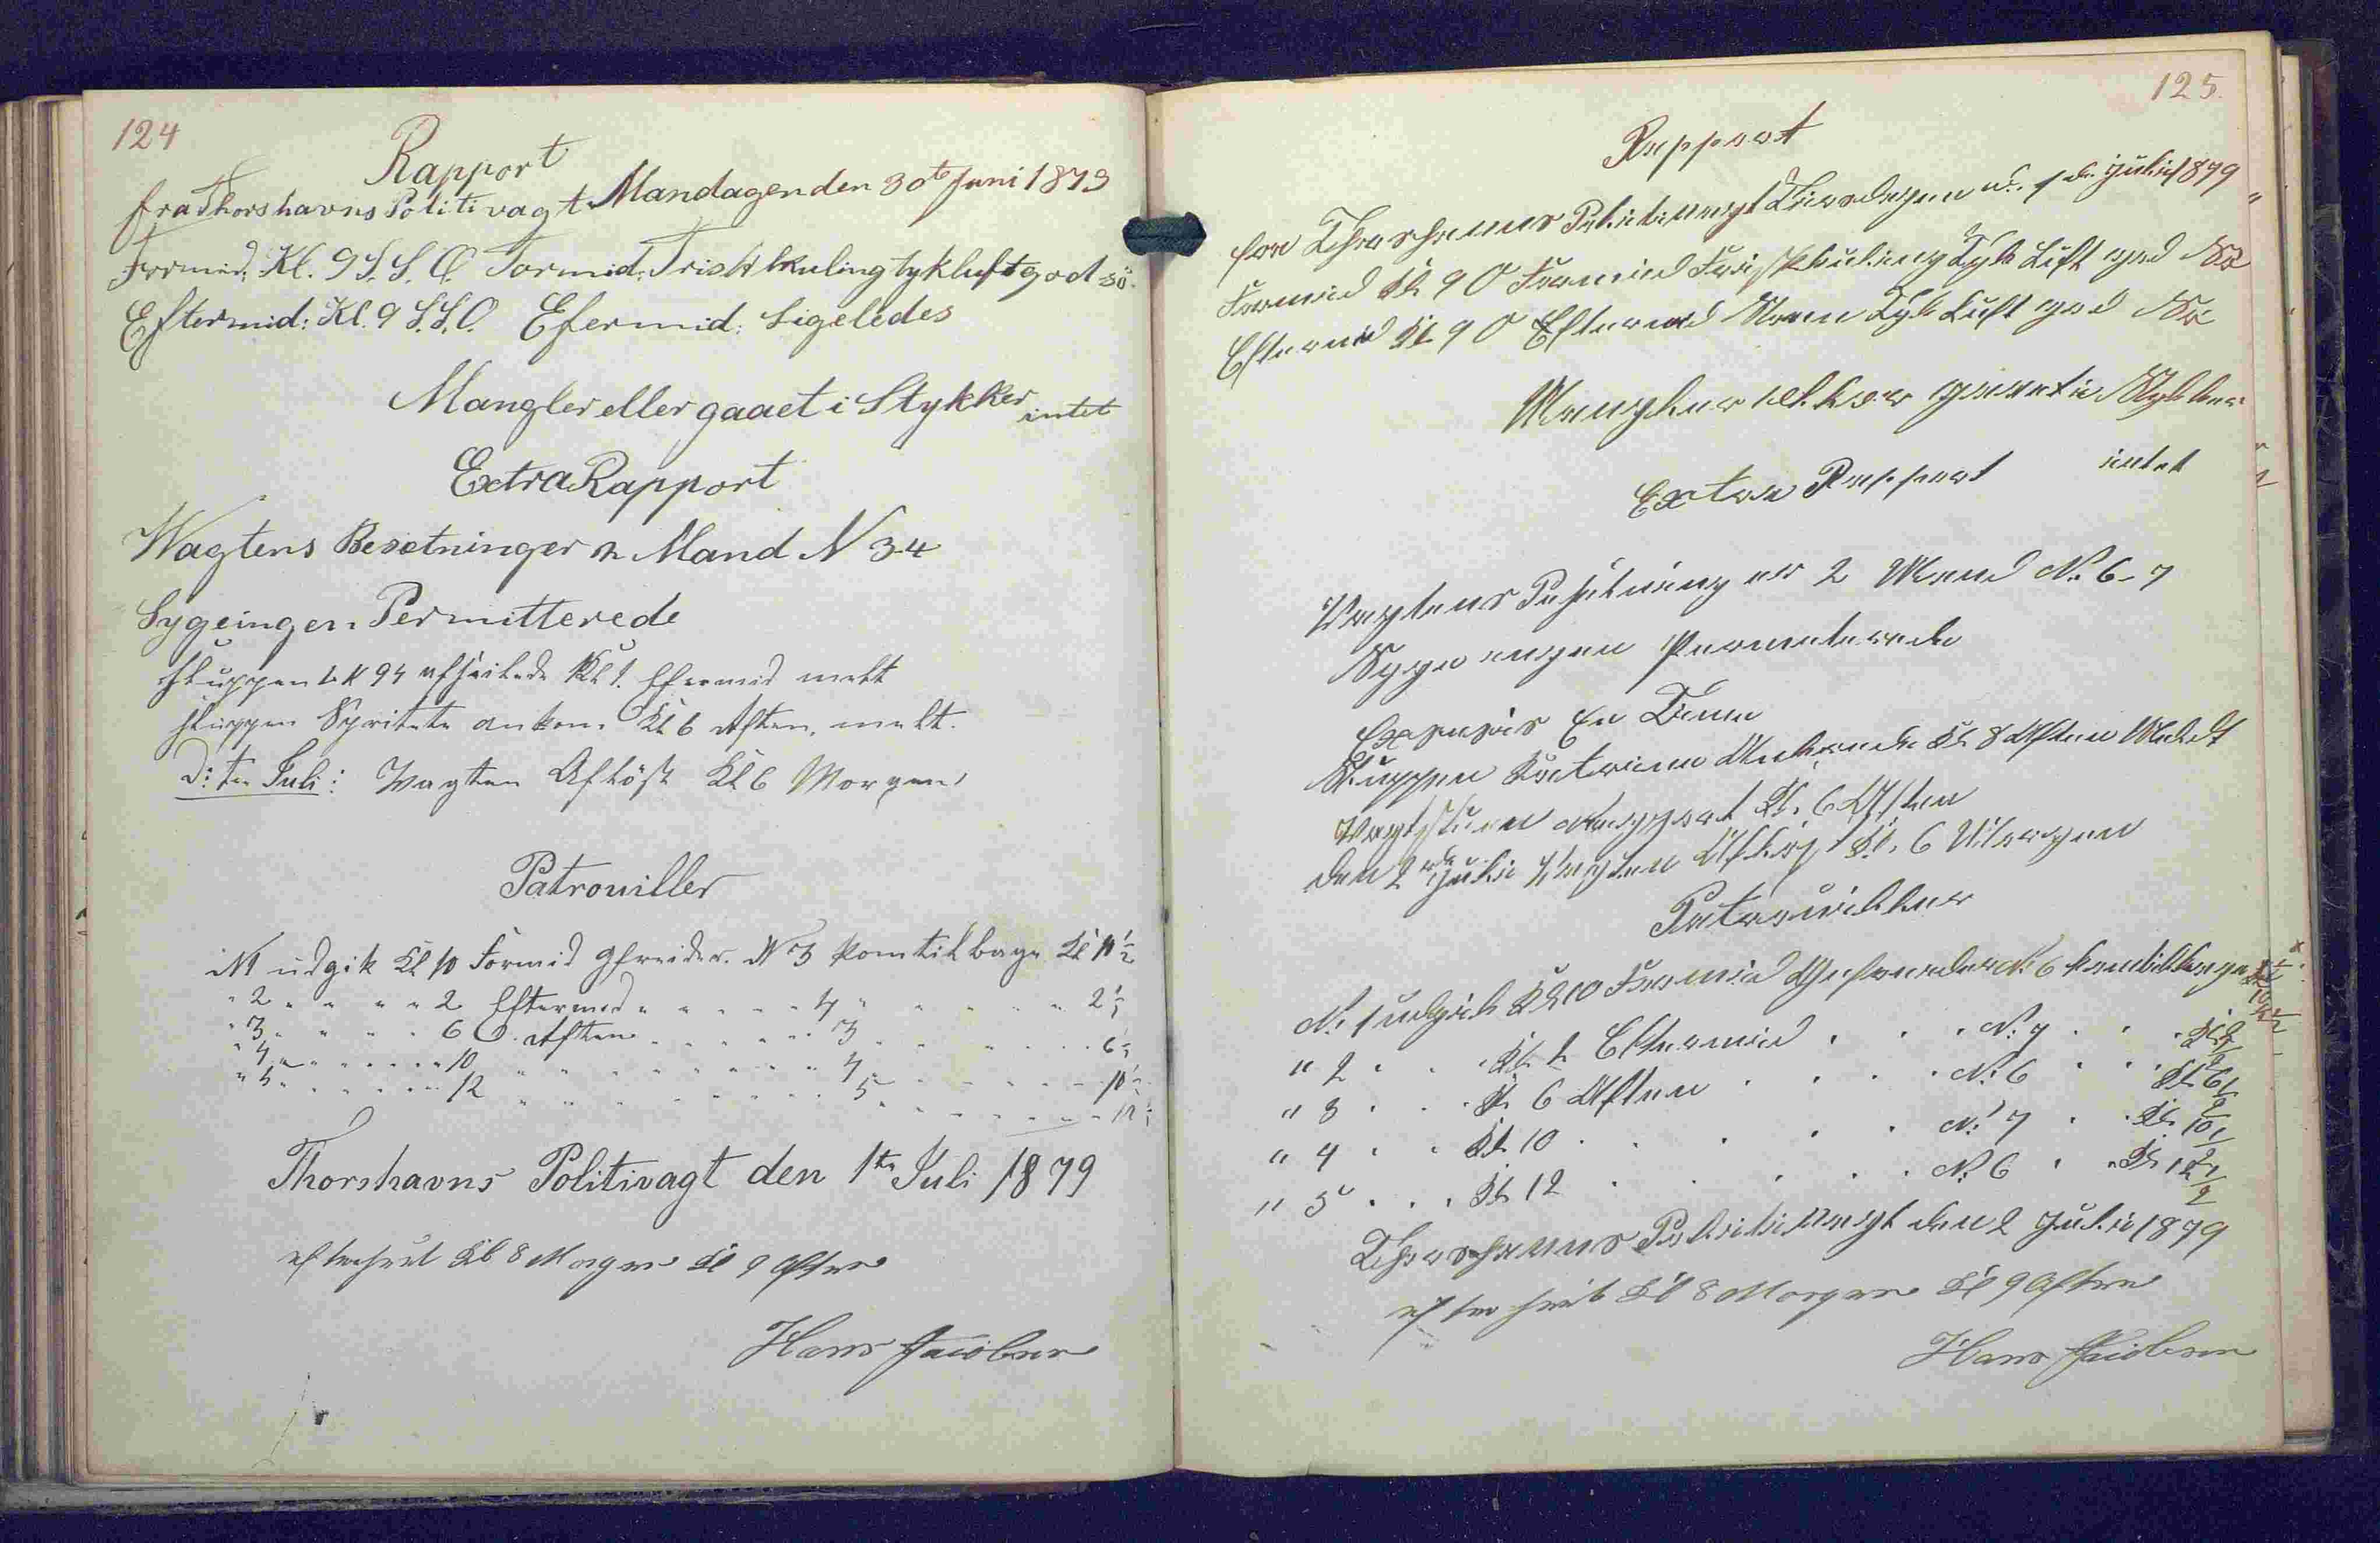 124
Rapport
fra Thorshavns Politivagt Mandagen den 30te Juni 1879
Formid: Kl. 9 S.S.O. Formid: Frisk kuling tyk luft god sö.
Eftermid: Kl. 9 S.S.O. Efermid: Ligeledes
Mangler eller gaaet i Stykker intet
Extra Rapport
Wagtens Besetninger 2 Mand N 3-4
Syge ingen Permitterede
Sluppen afseilede Kl 1. Efermid melt
Sluppen Spritete ankom Kl 6 Aften, melt.
D: 1te Juli: Vagten Aflöst Kl 6 Morgen
Patrouiller
N1 udgik Kl 10 Formid Gefreider N 3 kom tilbage Kl 10½
" 2 " " " " 2 Eftermid " " " " 4 " " " " " 2½
" 3 " " " " 6 Aften " " " " " 3 " " " " " 6½
" 4 " " " " " 10 " " " " " " " 4 " " " " " 10½
" 5 " " " " " 12 " " " " " " " 5 " " " " " 12½
Thorshavns Politivagt den 1te Juli 1879
efterseet Kl 8 Morgen Kl 9 Aften
Hans Jacobsen
125
Rapport
fra Thorshavns Politivagt Tirsdagen d. 1de Juli 1879
Formid Kl 9 O Formid Frisk kuling Tyk Luft god Sö
Eftermid Kl 9 O Eftermid Tyk Luft god Sö
Mangler eller gaaet i Stykker
intet
Extra Rapport
Vagtens Besetning er 2 Mand No. 6-7
Syge ingen Permeterede
Exersis En Time
Sluppen Katrine Ankrede Kl 8 Aften Meldt
Vagtstuen Kl. 6 Aften
den 2de Juli Vagten Aflöst Kl. 6 Morgen
Patrouiller
No. 1 udgik Kl 10 Formid Gefreider No 6 kom tilbage Kl 10½
" 2 . . Kl 2 Eftermid . . . No. 7 . . . Kl 2½
" 3 . . Kl 6 Aften . . . . No. 6 . . . Kl 6½
" 4 . . Kl 10 . . . . . No. 7 . . Kl 10½
" 5 . . . Kl 12 . . . . . No. 6 . . Kl 12½
Thorshavns Politivagt den 2 Juli 1879
efterseet Kl 8 Morgen Kl 9 Aften
Hans Jacobsen